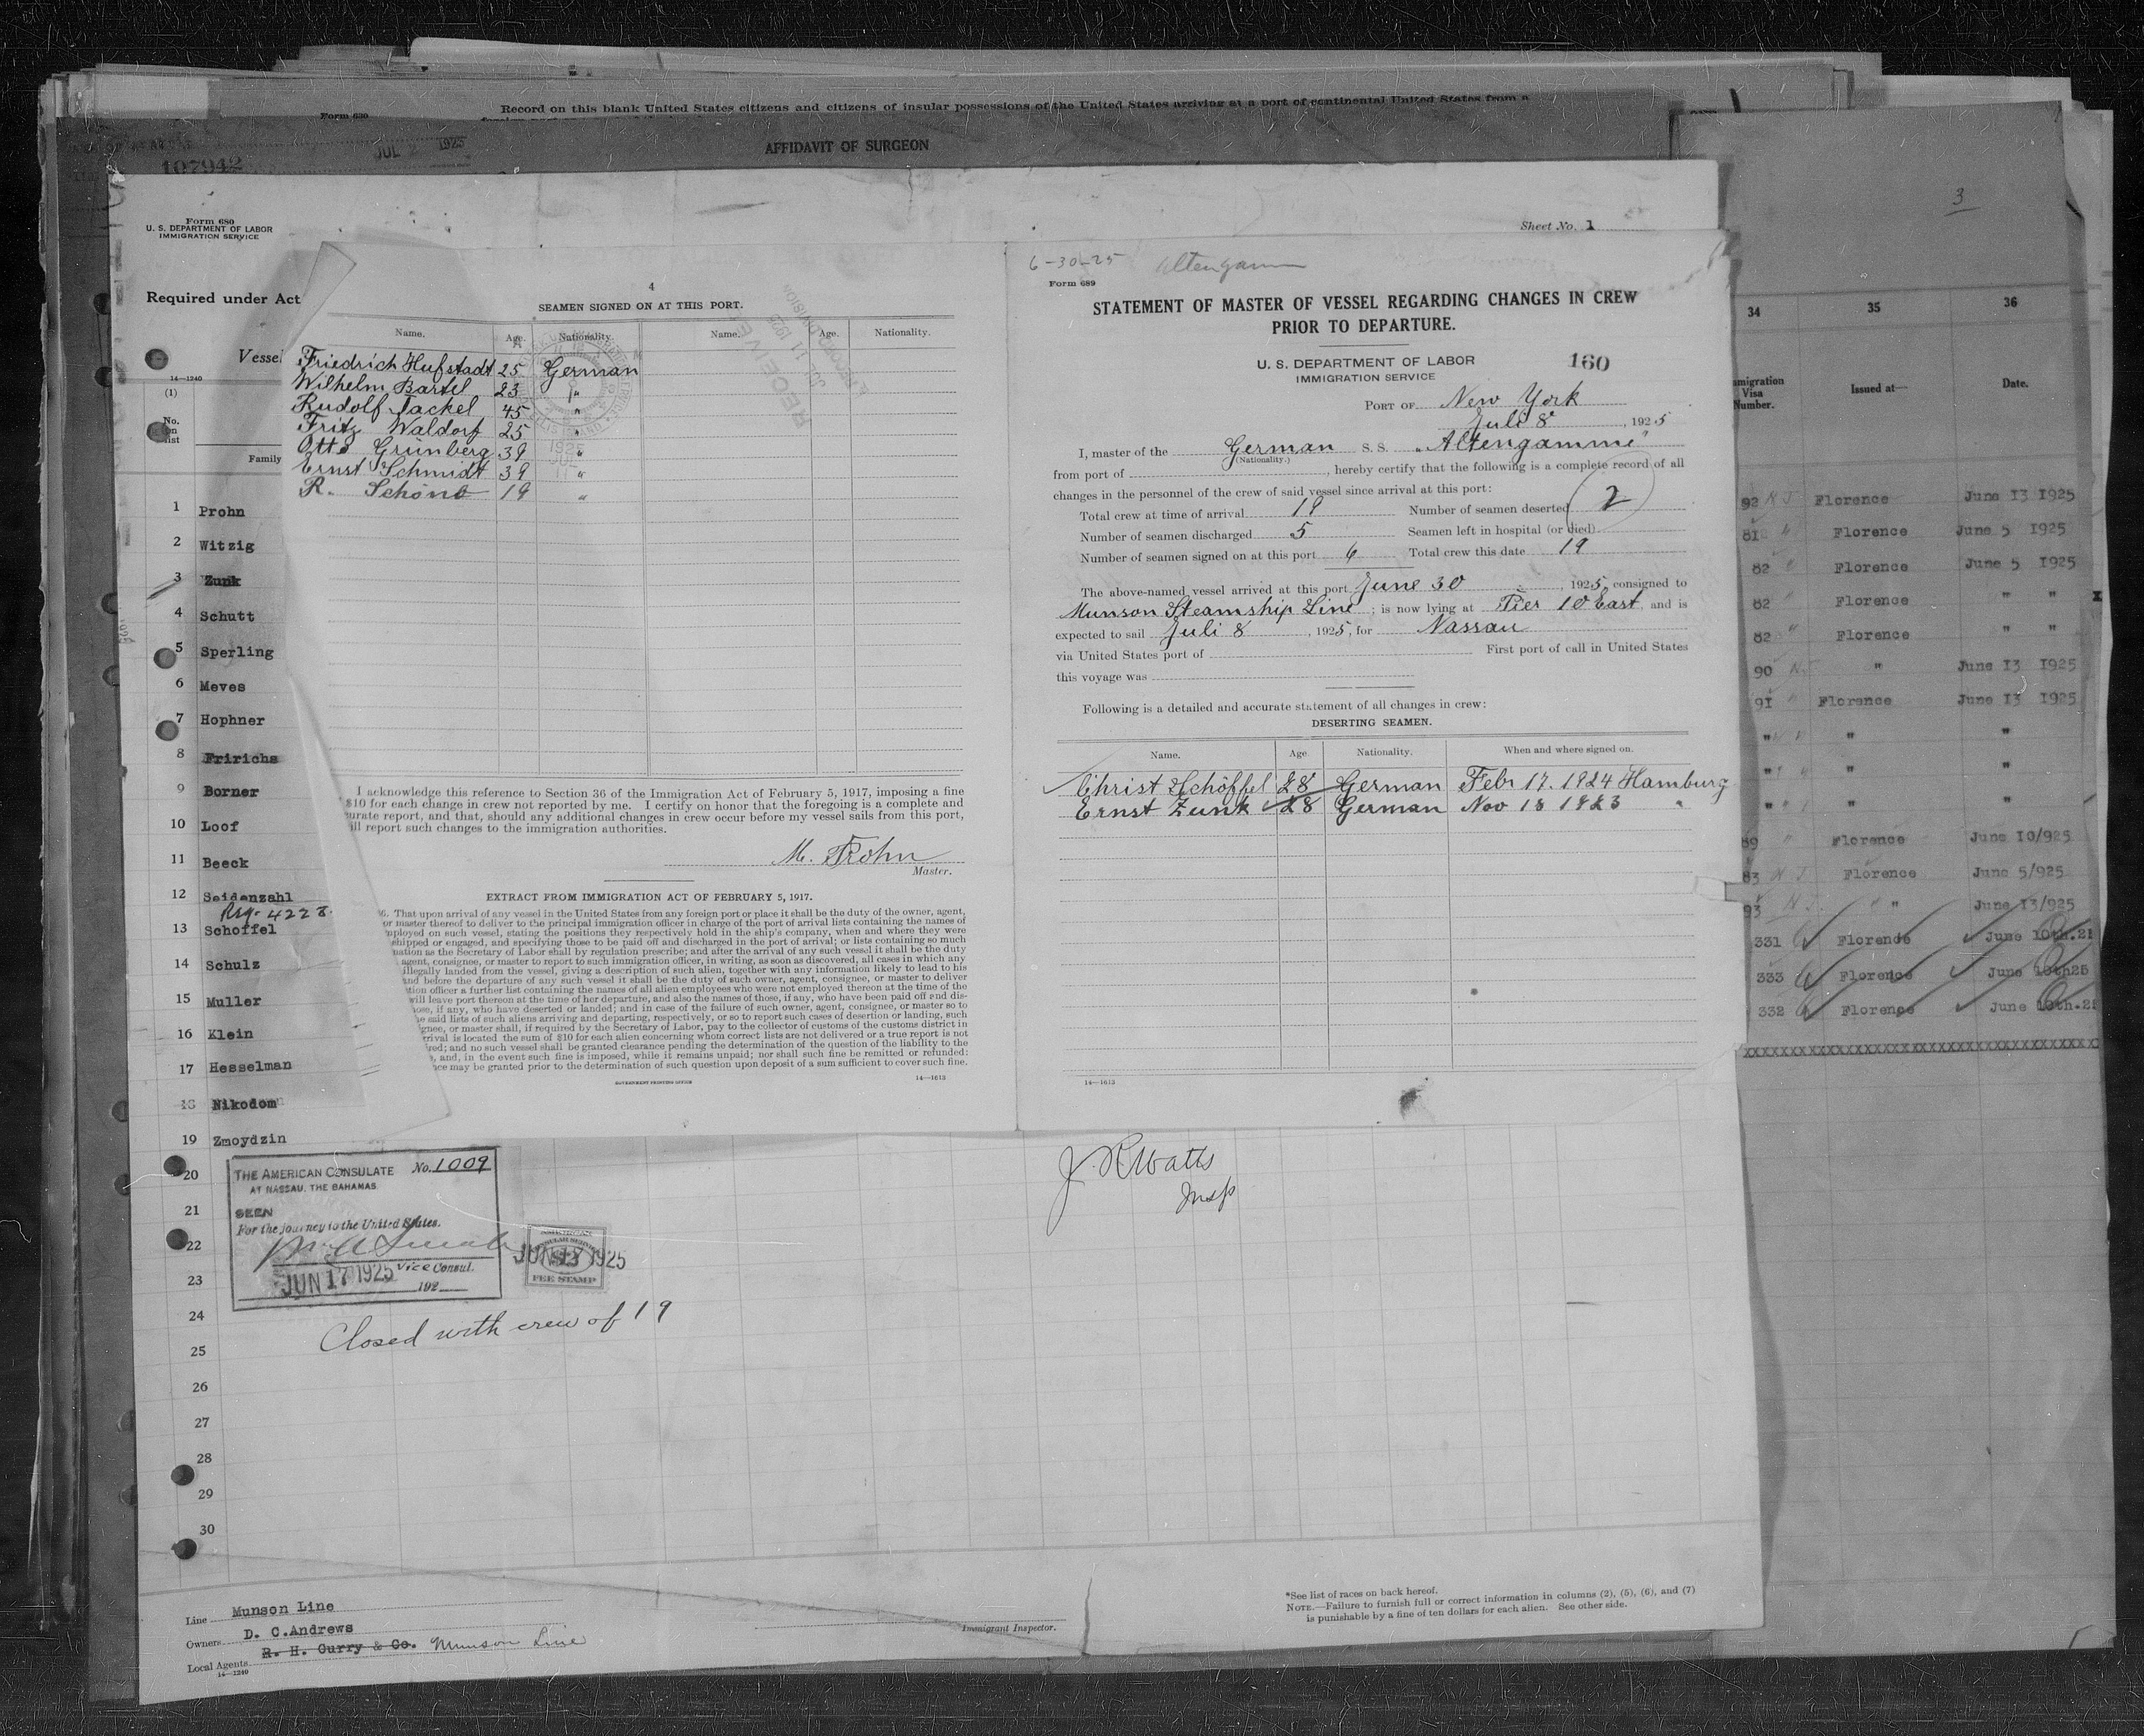 Form 630
Record on this blank United States citizens and citizens of insular possessions of the United States arriving at a port of continental United States from a
107942
JUL 2 1925
AFFIDAVIT OF SURGEON
Form 680
U. S. DEPARTMENT OF LABOR
IMMIGRATION SERVICE
Sheet No. 1
Required under Act
Vessel
14—1240
(1)
No. on list
Family
1 Prohn
2 Witzig
3 Zunk
4 Schutt
5 Sperling
6 Meves
7 Hophner
8 Fririchs
9 Borner
10 Loof
11 Beeck
12 Seidenzahl
13 Schoffel
14 Schulz
15 Muller
16 Klein
17 Hesselman
18 Nikodom
19 Zmoydzin
20
21
22
23
24
25
26
27
28
29
30
4
SEAMEN SIGNED ON AT THIS PORT.
Name. Age. Nationality. Name. Age. Nationality.
Friedrich Hufstadt 25 German
Wilhelm Bartel 23 "
Rudolf Jackel 45 "
Fritz Waldorf 25 "
Otto Grünberg 39 "
Ernst Schmidt 39 "
R. Schönb 19 "
RECEIVED
JUL 11 1925
I acknowledge this reference to Section 36 of the Immigration Act of February 5, 1917, imposing a fine
$10 for each change in crew not reported by me. I certify on honor that the foregoing is a complete and
urate report, and that, should any additional changes in crew occur before my vessel sails from this port,
ill report such changes to the immigration authorities.
M. Prohn
Master.
EXTRACT FROM IMMIGRATION ACT OF FEBRUARY 5, 1917.
6. That upon arrival of any vessel in the United States from any foreign port or place it shall be the duty of the owner, agent,
or master thereof to deliver to the principal immigration officer in charge of the port of arrival lists containing the names of
mployed on such vessel, stating the positions they respectively hold in the ship's company, when and where they were
shipped or engaged, and specifying those to be paid off and discharged in the port of arrival; or lists containing so much
mation as the Secretary of Labor shall by regulation prescribe; and after the arrival of any such vessel it shall be the duty
agent, consignee, or master to report to such immigration officer, in writing, as soon as discovered, all cases in which any
illegally landed from the vessel, giving a description of such alien, together with any information likely to lead to his
and before the departure of any such vessel it shall be the duty of such owner, agent, consignee, or master to deliver
tion officer a further list containing the names of all alien employees who were not employed thereon at the time of the
will leave port thereon at the time of her departure, and also the names of those, if any, who have been paid off and dis-
ose, if any, who have deserted or landed; and in case of the failure of such owner, agent, consignee, or master so to
e said lists of such aliens arriving and departing, respectively, or so to report such cases of desertion or landing, such
gnee, or master shall, if required by the Secretary of Labor, pay to the collector of customs of the customs district in
rrival is located the sum of $10 for each alien concerning whom correct lists are not delivered or a true report is not
red; and no such vessel shall be granted clearance pending the determination of the question of the liability to the
, and, in the event such fine is imposed, while it remains unpaid; nor shall such fine be remitted or refunded:
nce may be granted prior to the determination of such question upon deposit of a sum sufficient to cover such fine.
GOVERNMENT PRINTING OFFICE
14—1613
6-30-25 Altengamm
Form 689
STATEMENT OF MASTER OF VESSEL REGARDING CHANGES IN CREW
PRIOR TO DEPARTURE.
U. S. DEPARTMENT OF LABOR
IMMIGRATION SERVICE
160
PORT OF New York
Juli 8, 1925
I, master of the German S. S. "Altengamme"
(Nationality.)
from port of , hereby certify that the following is a complete record of all
changes in the personnel of the crew of said vessel since arrival at this port:
Total crew at time of arrival 19 Number of seamen deserted 2
Number of seamen discharged 5 Seamen left in hospital (or died)
Number of seamen signed on at this port 6 Total crew this date 19
The above-named vessel arrived at this port June 30, 1925, consigned to
Munson Steamship Line; is now lying at Pier 10 East, and is
expected to sail Juli 8, 1925, for Nassau
via United States port of First port of call in United States
this voyage was
Following is a detailed and accurate statement of all changes in crew:
DESERTING SEAMEN.
Name. Age Nationality. When and where signed on.
Christ Schöffel 28 German Febr 17. 1924 Hamburg
Ernst Zunk 28 German Nov 18 1923 "
14—1613
3
34 35 36
migration Visa Number. Issued at— Date.
92 N J Florence June 13 1925
81 " Florence June 5 1925
82 " Florence June 5 1925
82 " Florence " "
82 " Florence " "
90 N. " June 13 1925
91 " Florence June 13 1925
" " "
" " "
" " "
89 " Florence June 10/925
83 N J Florence June 5/925
93 N J " " June 13/925
331 Florence June 10th.25
333 Florence June 10th25
332 Florence June 10th.25
XXXXXXXXXXXXXXXXXXXXXXXXXXXXXXXXXXX
THE AMERICAN CONSULATE No. 1009
AT NASSAU, THE BAHAMAS
SEEN
For the journey to the United States.
Vice Consul.
JUN 17 1925
192
JUN 13 1925
FEE STAMP
J R Watts
Insp
Closed with crew of 19
Line Munson Line
Owners D. C.Andrews
Local Agents R. H. Curry & Co. Munson Line
14—1240
Immigrant Inspector.
*See list of races on back hereof.
NOTE.—Failure to furnish full or correct information in columns (2), (5), (6), and (7)
is punishable by a fine of ten dollars for each alien. See other side.